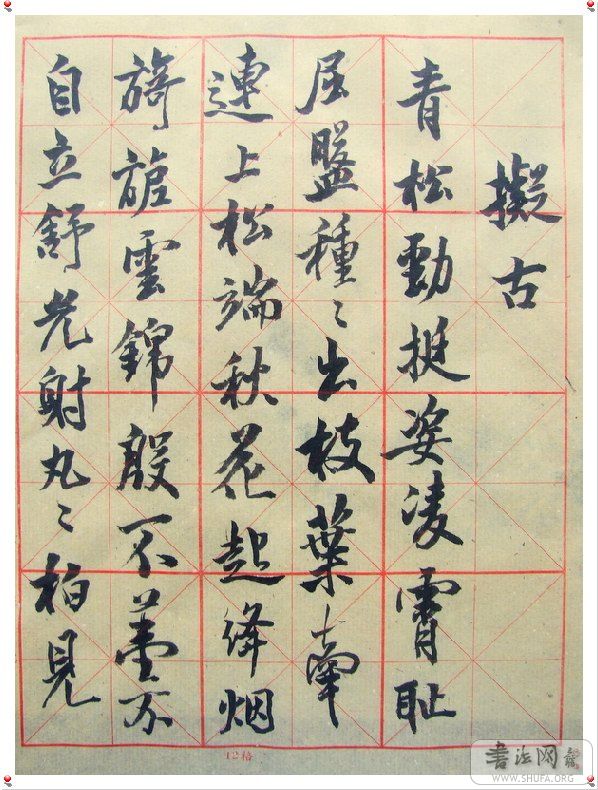 擬古
青松勁挺姿凌霄耻
屈盤種〻出枝葉牽
連上松端秋花起絳烟
旖旎雲錦殷不羞不
自立舒光射丸〻柏見
12格
書法网
WWW.SHUFA.ORG